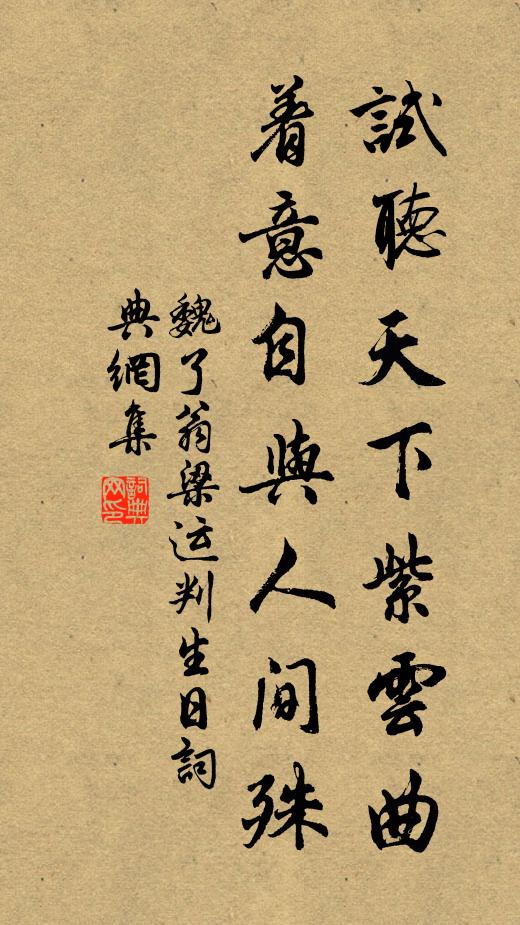 試聽天下紫雲曲
着意自與人間殊
魏了翁梁运判生日詞
典網集
詞典网印